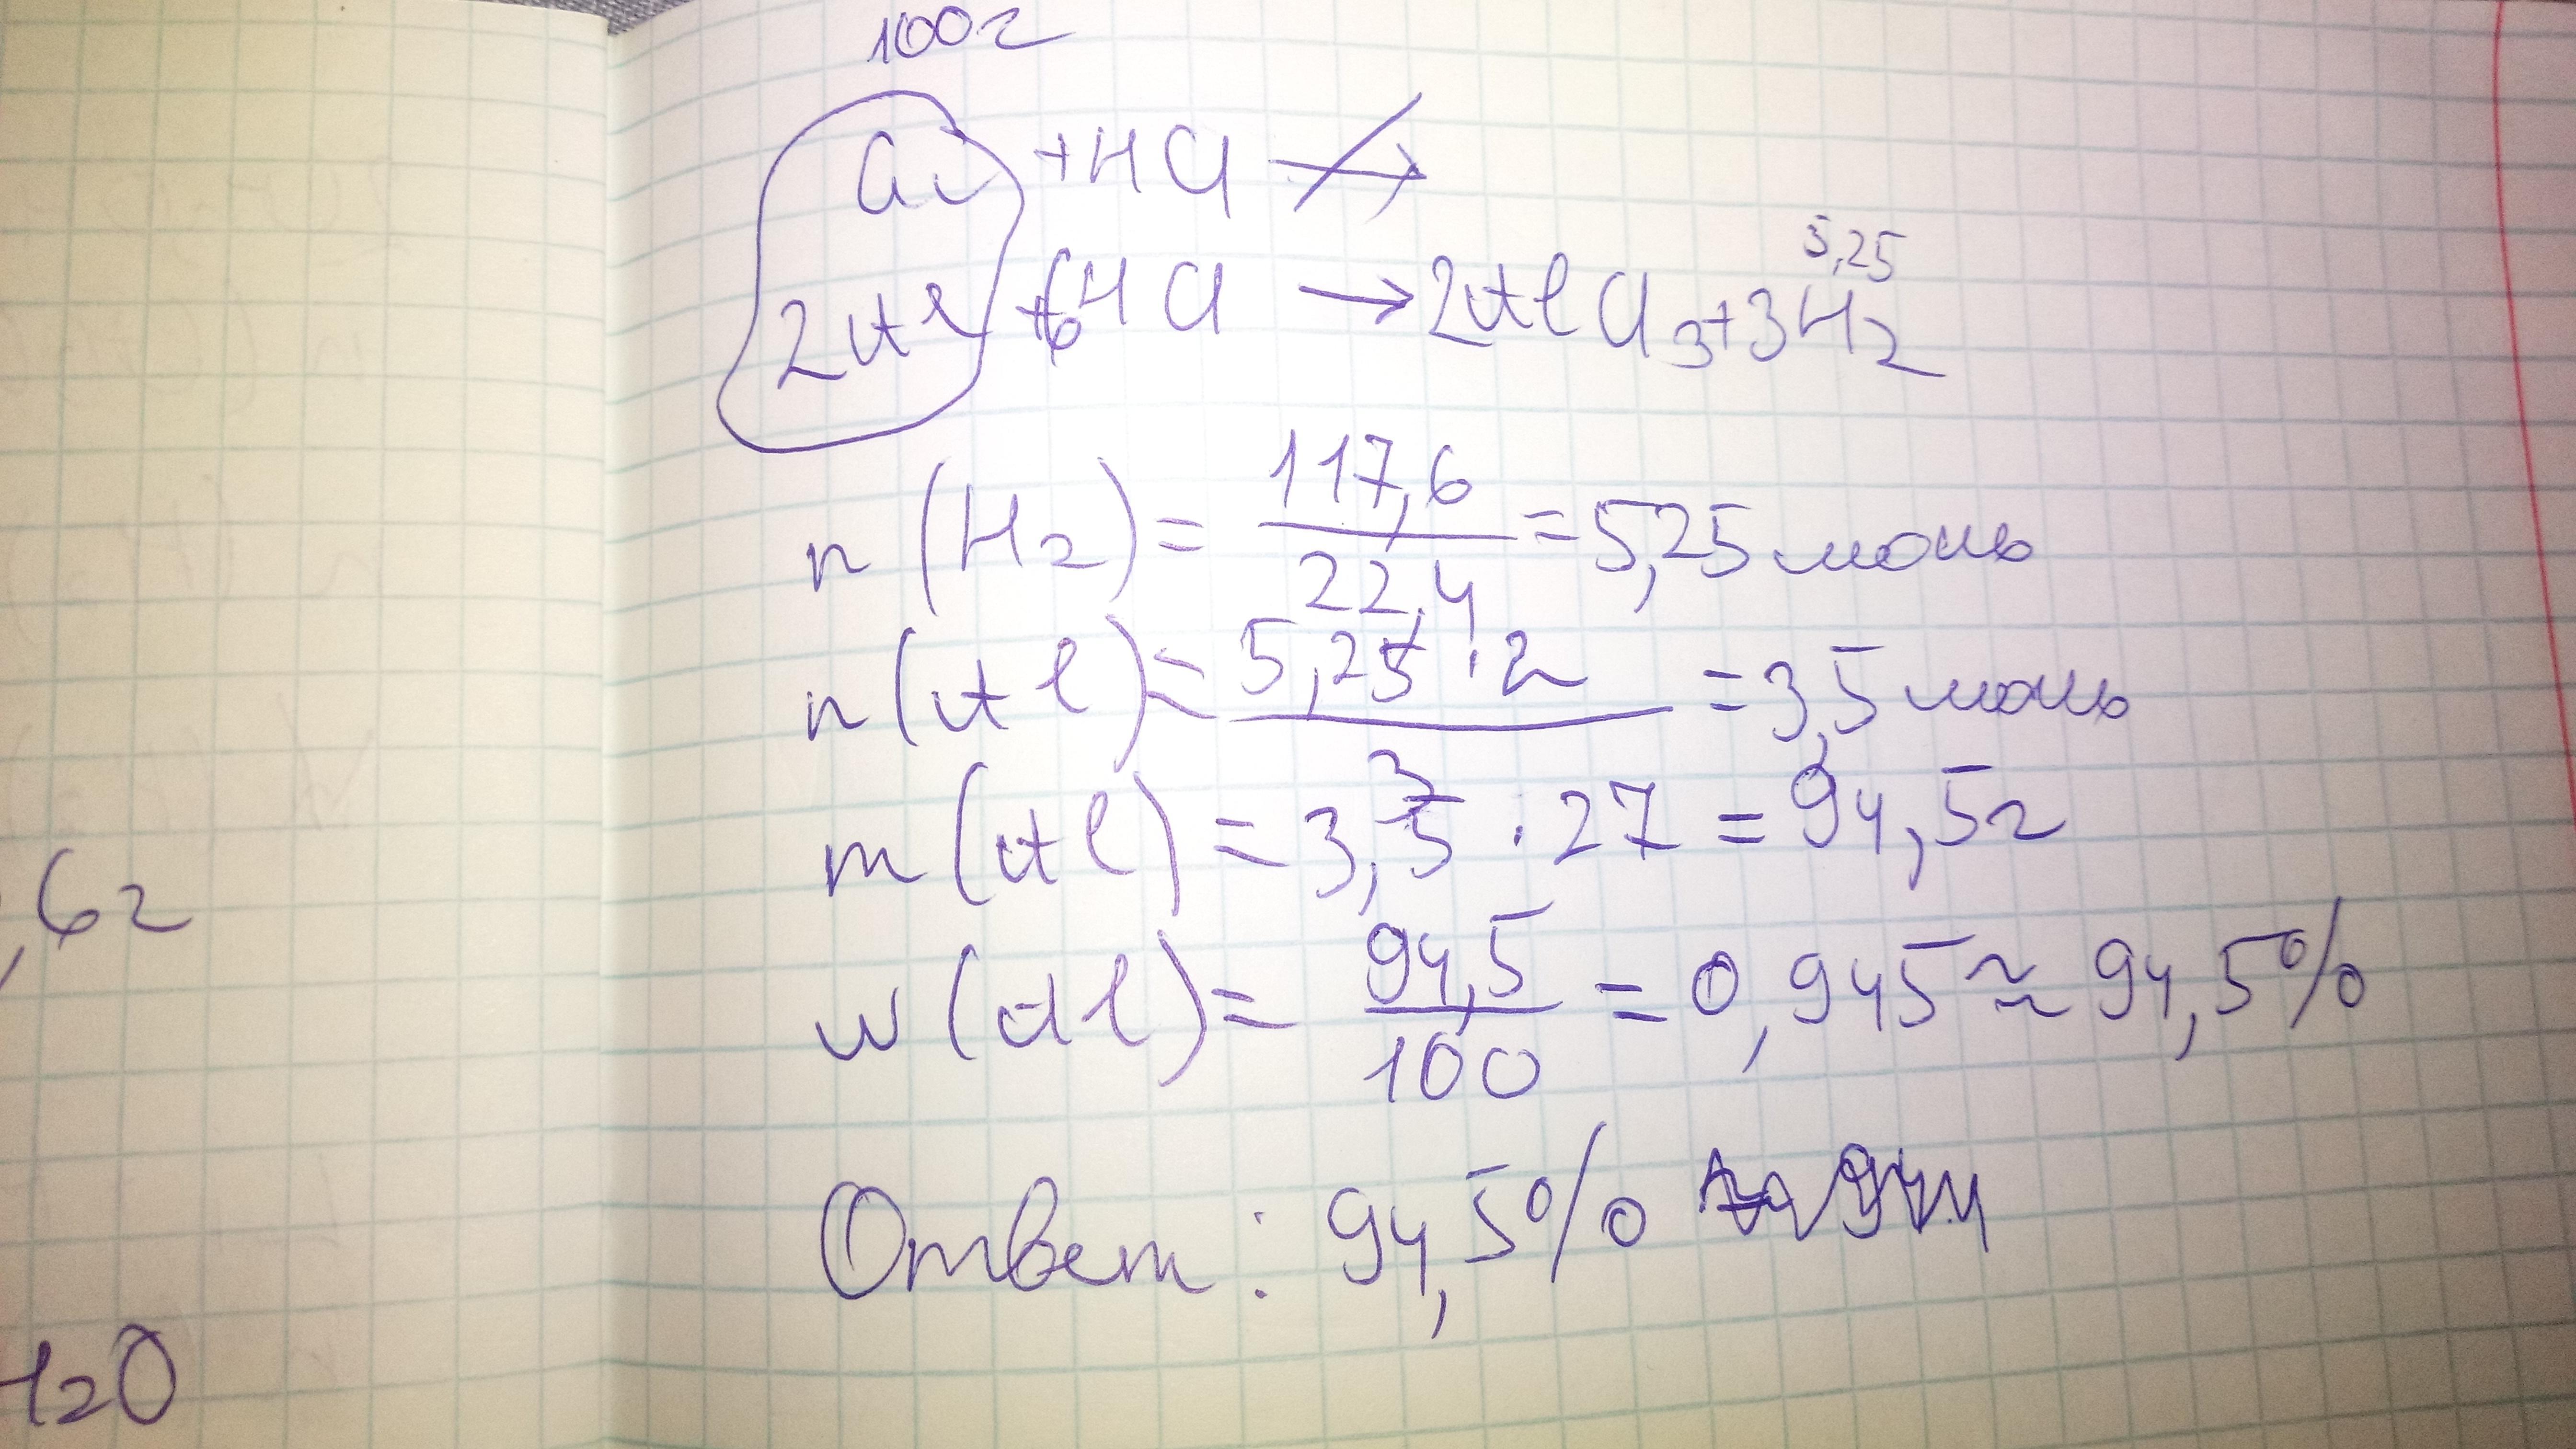 100г
Cu + HCl ↛
5,25
2Al + 6HCl → 2AlCl₃ + 3H₂
n(H₂) = 117,6 / 22,4 = 5,25 моль
n(Al) = 5,25 · 2 / 3 = 3,5 моль
m(Al) = 3,5 · 27 = 94,5г
w(Al) = 94,5 / 100 = 0,945 ≈ 94,5%
Ответ: 94,5%
,6г
H₂O